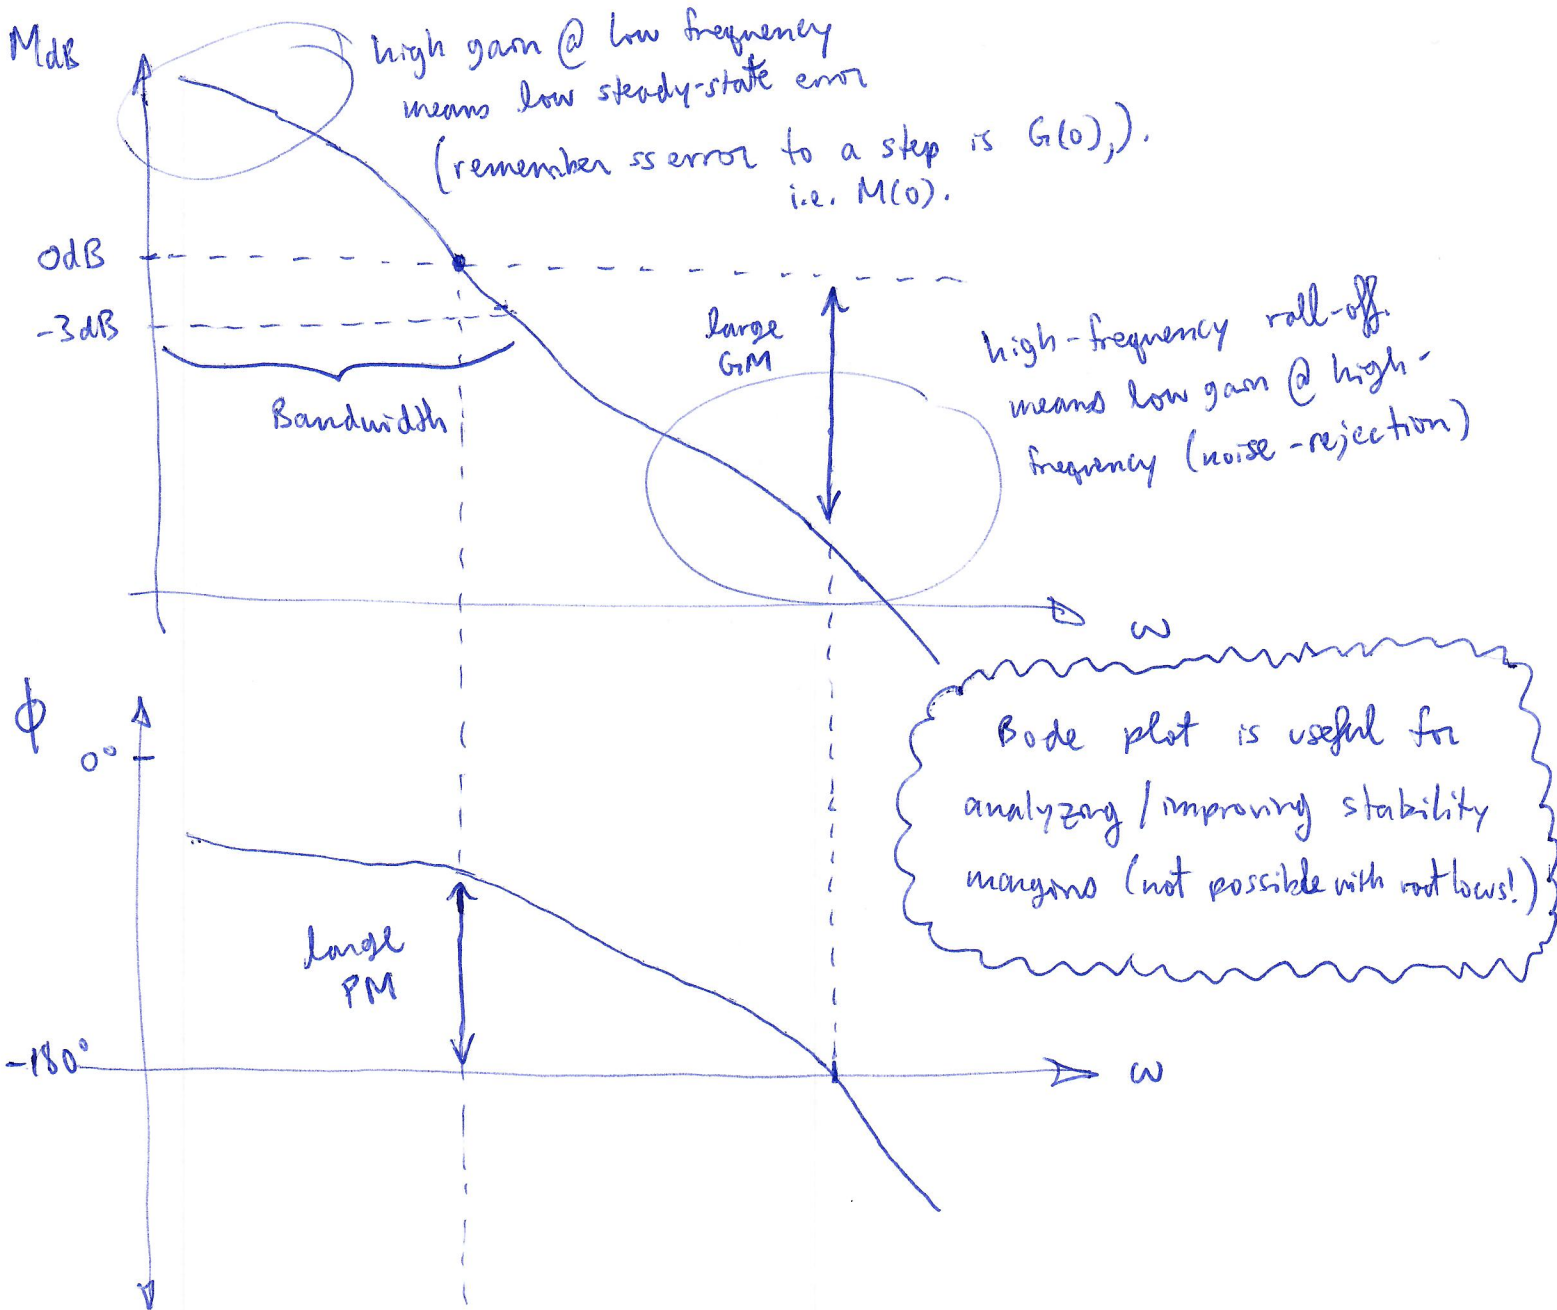 MdB
high gain @ low frequency
means low steady-state error
(remember ss error to a step is G(0),).
i.e. M(0).
0dB
-3dB
Bandwidth
large
GM
high-frequency roll-off.
means low gain @ high-
frequency (noise-rejection)
ω
ϕ
0°
Bode plot is useful for
analyzing/improving stability
margins (not possible with root locus!)
large
PM
-180°
ω